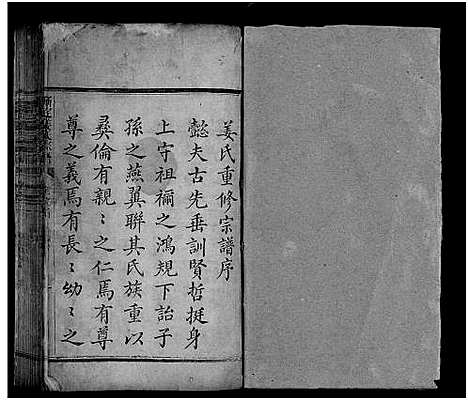 姜氏重修宗譜序
懿夫古先垂訓賢哲挺身
上守祖禰之鴻規下詒子
孫之燕翼聯其氏族重以
彛倫有親〻之仁焉有尊
尊之義焉有長〻幼〻之